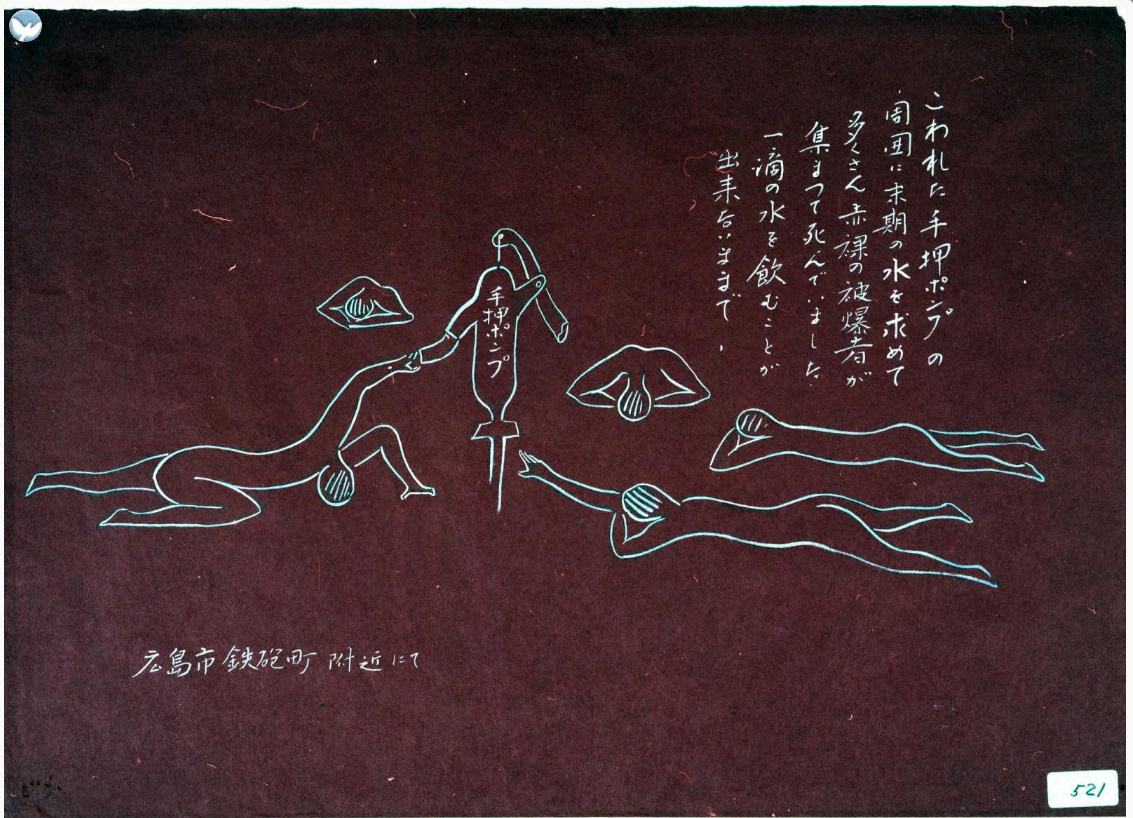 こわれた手押ポンプの
周囲に末期の水を求めて
多くさん赤裸の被爆者が
集まつて死んでいました
一滴の水を飲むことが
出来ないままで、
手押ポンプ
広島市鉄砲町附近にて
521